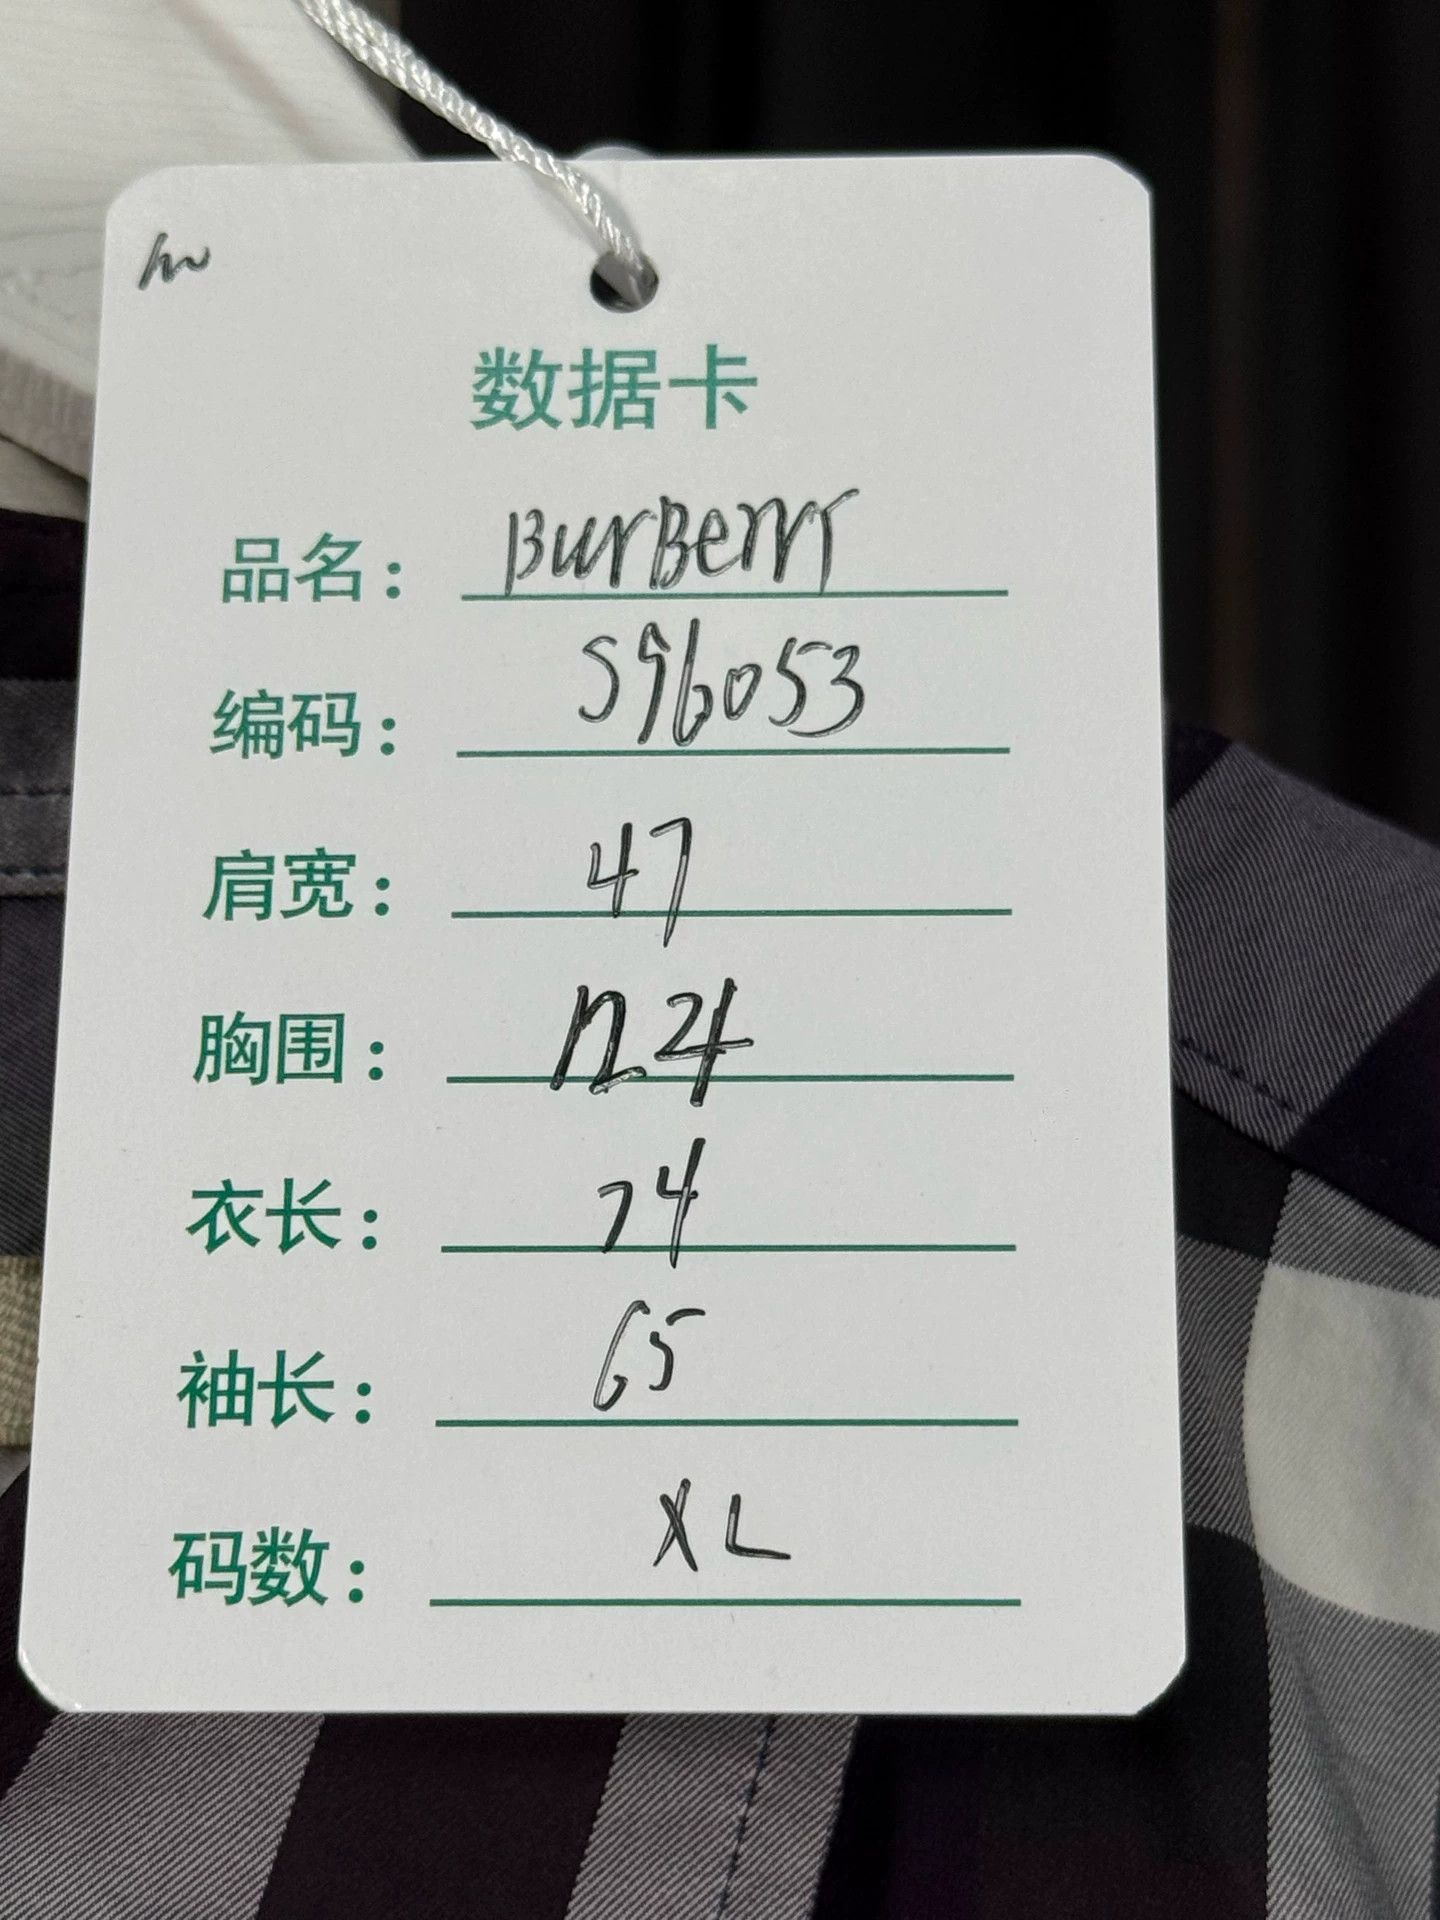 数据卡
品名: BurBerry
编码: S96053
肩宽: 47
胸围: 124
衣长: 74
袖长: 65
码数: XL